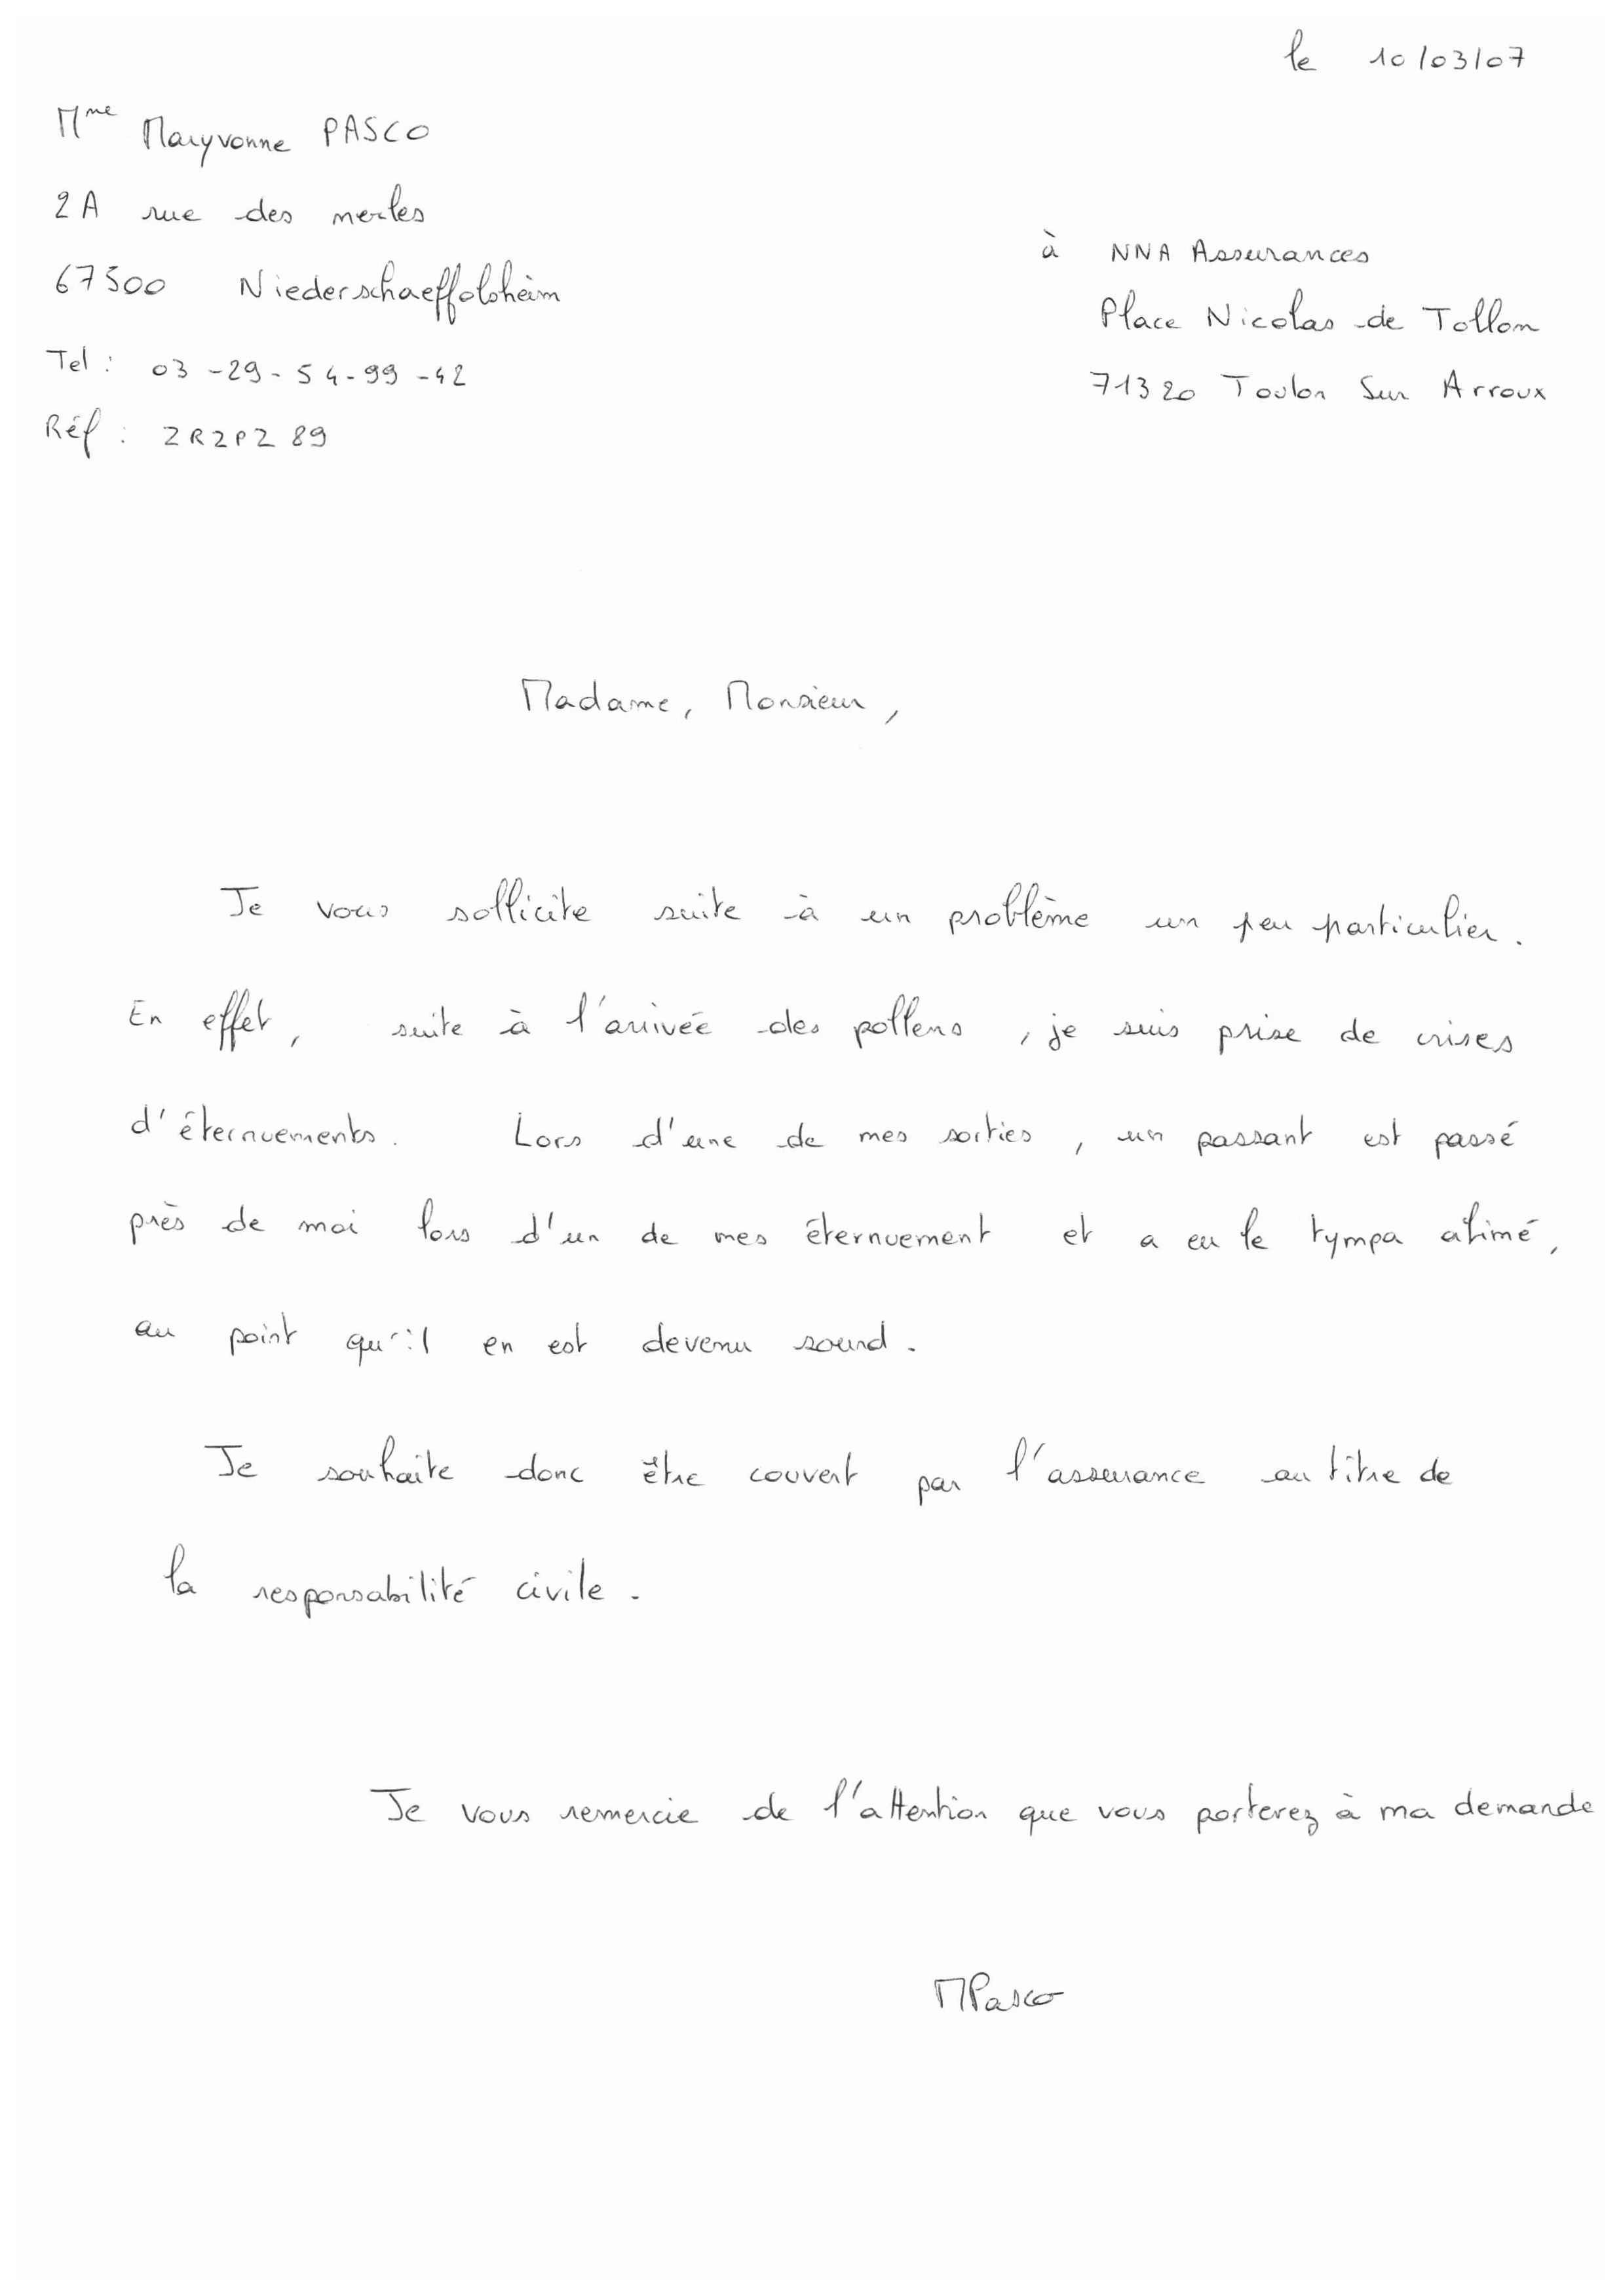 le 10/03/07
Mme Maryvonne PASCO
2A rue des merles
67500 Niederschaeffolsheim
Tel : 03-29-54-99-42
Réf : ZR2PZ89
à NNA Assurances
Place Nicolas de Tollon
71320 Toulon Sur Arroux
Madame, Monsieur,
Je vous sollicite suite à un problème un peu particulier.
En effet, suite à l'arrivée des pollens, je suis prise de crises
d'éternuements. Lors d'une de mes sorties, un passant est passé
près de moi lors d'un de mes éternuement et a eu le tympa abimé,
au point qu'il en est devenu sourd.
Je souhaite donc être couvert par l'assurance au titre de
la responsabilité civile.
Je vous remercie de l'attention que vous porterez à ma demande
MPasco